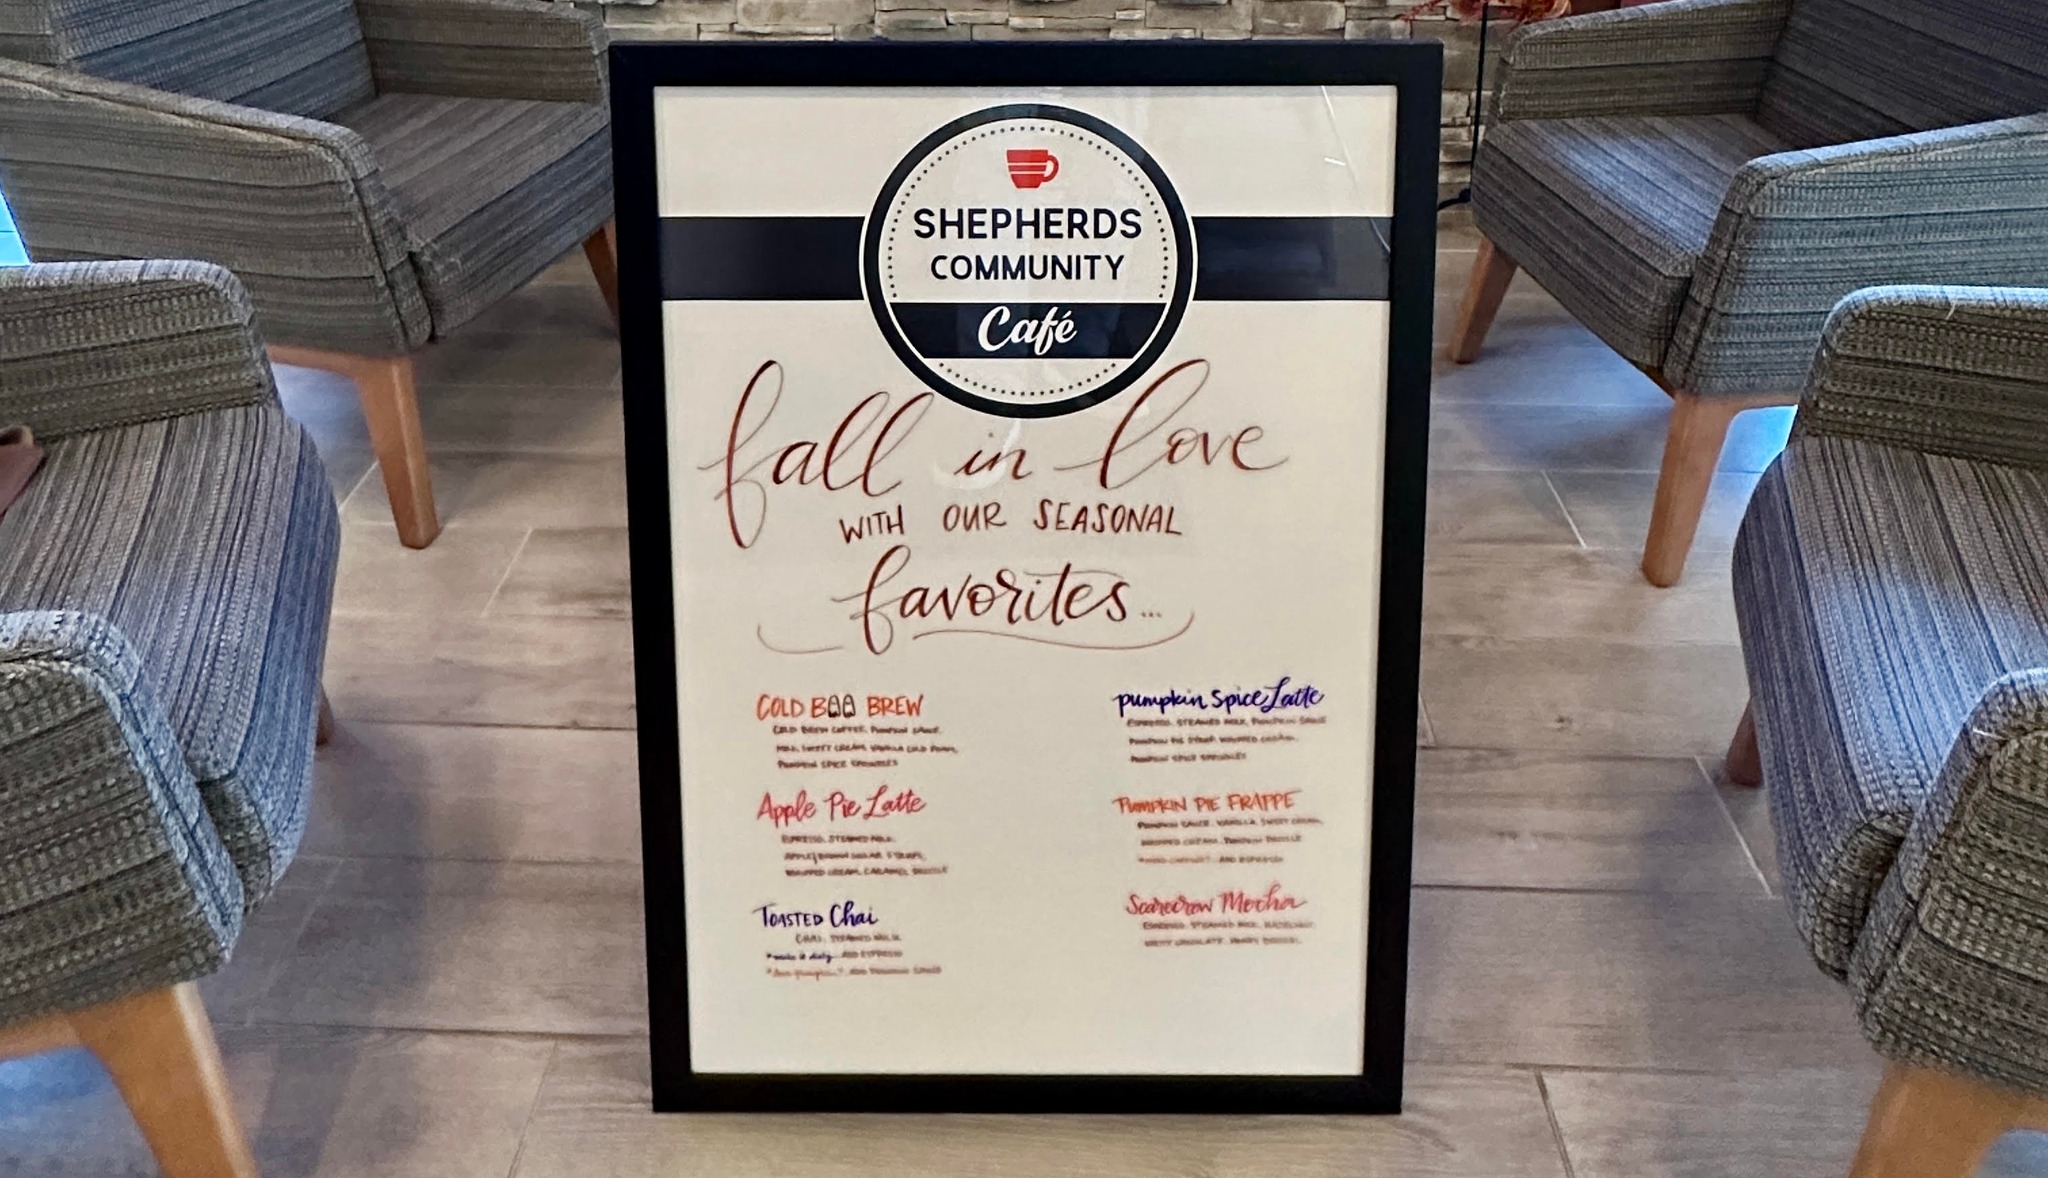 SHEPHERDS
COMMUNITY
Café
fall in love
WITH OUR SEASONAL
favorites...
COLD BOO BREW
COLD BREW COFFEE, PUMPKIN SAUCE,
MILK, SWEET CREAM, VANILLA COLD FOAM,
PUMPKIN SPICE SPRINKLES
Apple Pie Latte
ESPRESSO, STEAMED MILK,
APPLE/BROWN SUGAR SYRUPS,
WHIPPED CREAM, CARAMEL DRIZZLE
TOASTED Chai
CHAI, STEAMED MILK
*make it dirty... ADD ESPRESSO
ADD PUMPKIN SAUCE
pumpkin Spice Latte
ESPRESSO, STEAMED MILK, PUMPKIN SAUCE
PUMPKIN PIE SYRUP, WHIPPED CREAM,
PUMPKIN SPICE SPRINKLES
PUMPKIN PIE FRAPPE
PUMPKIN SAUCE, VANILLA, SWEET CREAM,
WHIPPED CREAM, PUMPKIN DRIZZLE
ADD ESPRESSO
Scarecrow Mocha
ESPRESSO, STEAMED MILK, HAZELNUT,
WHITE CHOCOLATE, HONEY DRIZZLE